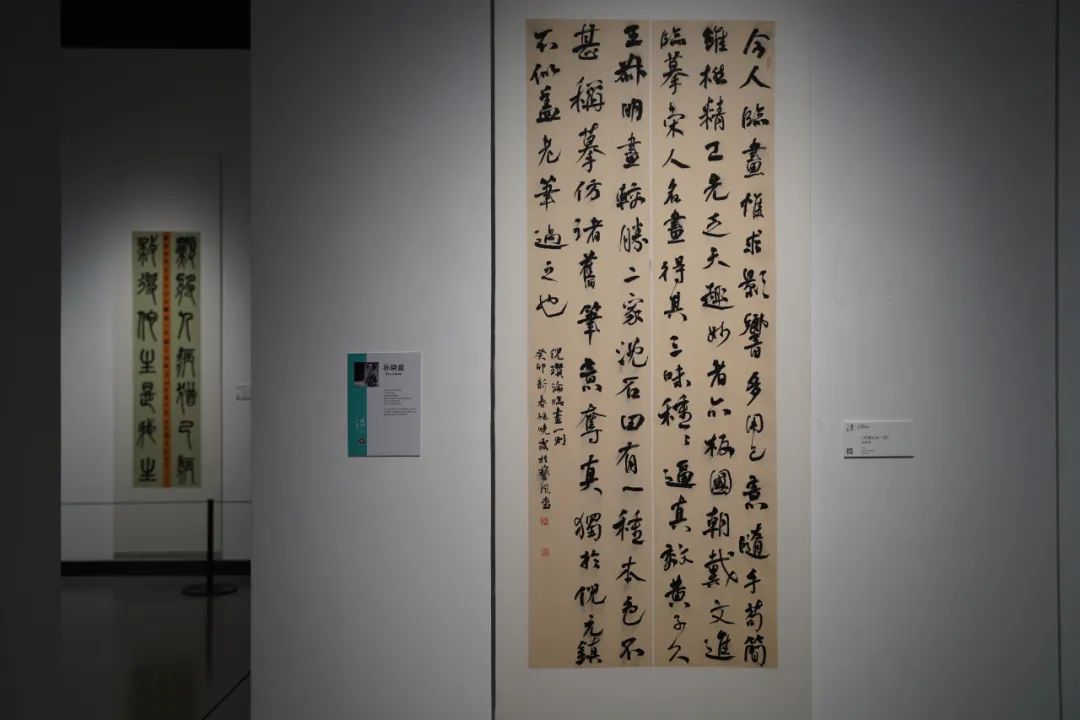 今人臨畫惟求影響多用己意隨手苟簡
雖極精工先乏天趣妙者亦板國朝戴文進
臨摹宋人名畫得其三昧種〻逼真效黃子久
王叔明畫較勝二家沈石田有一種本色不
甚稱摹仿諸舊筆意奪真獨於倪元鎮
不似蓋老筆過之也
倪瓚論臨畫一則
癸卯新春孫曉
人病猶己病
救得他生是我生